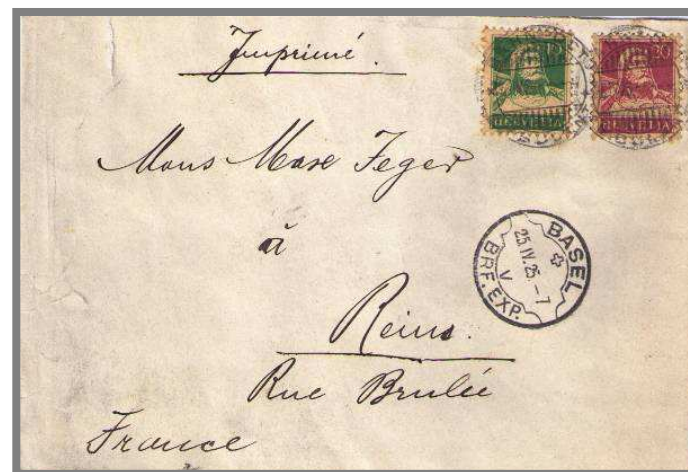 Imprimé.
10 20
HELVETIA HELVETIA
Mons Max Jeger
à
BASEL
25.IV.25.–7
V
BRF. EXP.
Reims.
Rue Brulée
France